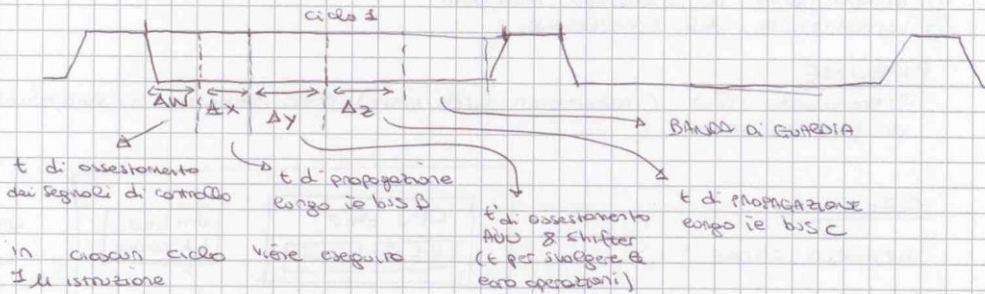 ciclo 1
ΔW ΔX ΔY ΔZ
BANDA di GUARDIA
t di assestamento
dei segnali di controllo
t di propagazione
lungo il bus B
t di assestamento
ALU & shifter
(t per svolgere le
loro operazioni)
t di PROPAGAZIONE
lungo il bus C
in ciascun ciclo viene eseguita
1 μ istruzione